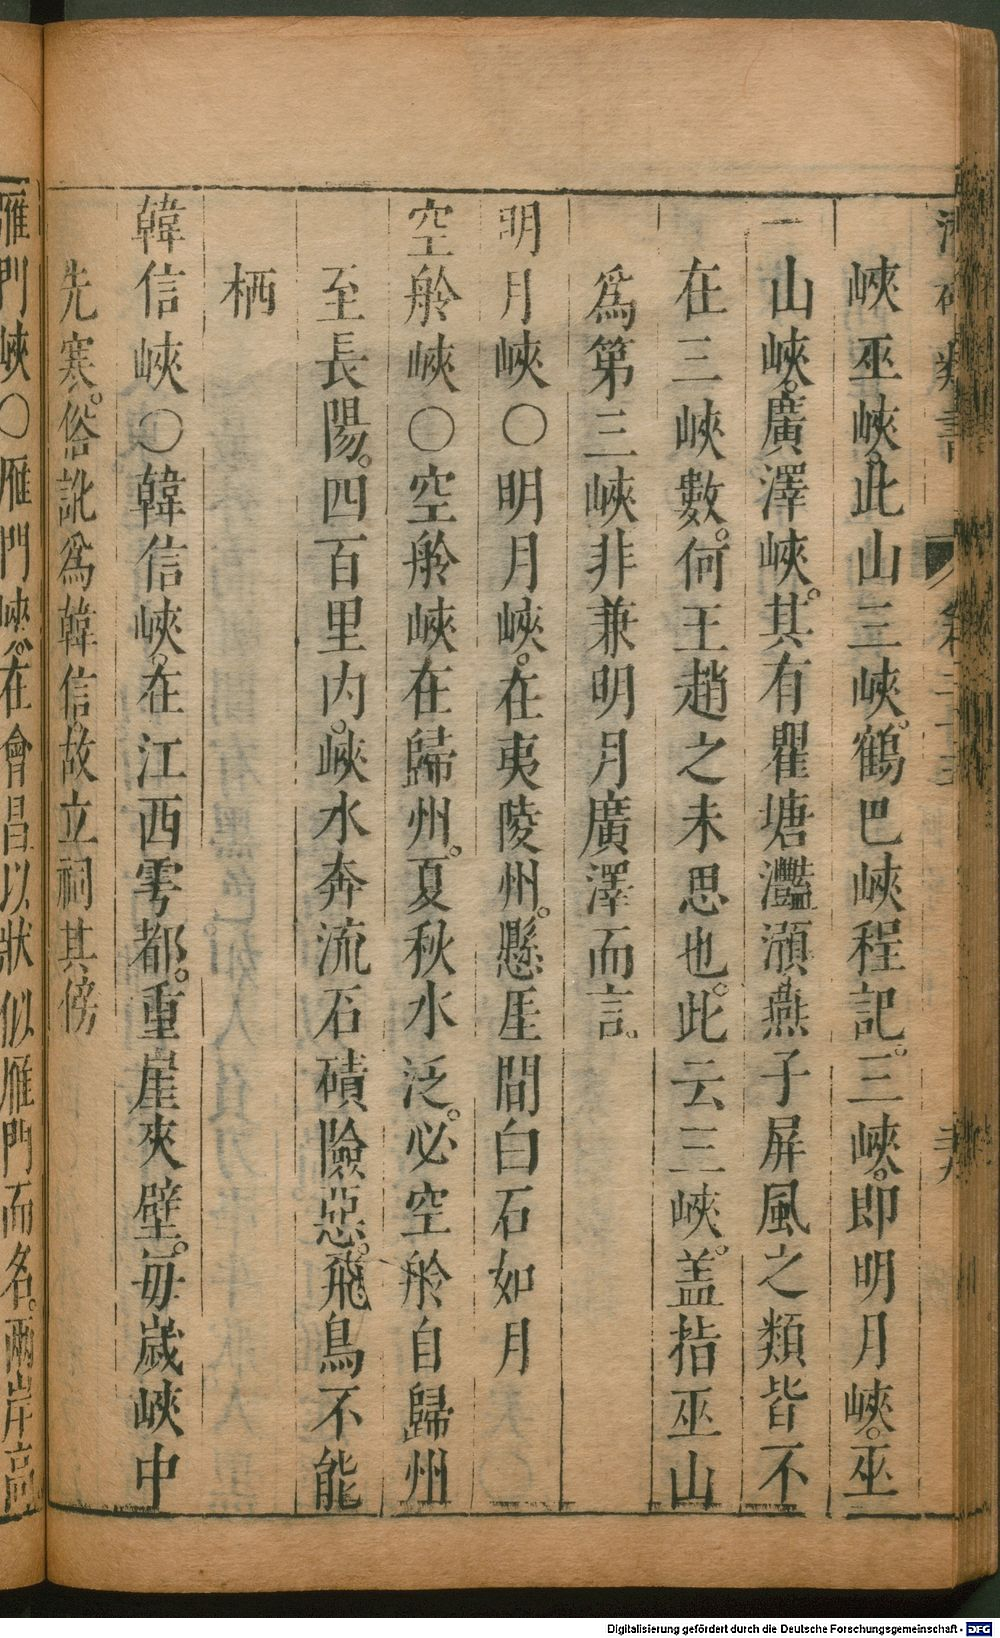 峽巫峽。此山三峽。鶴巴峽程記。三峽。即明月峽。巫
山峽。廣澤峽。其有瞿塘灩澦燕子屏風之類皆不
在三峽數。何王趙之未思也。此云三峽。盖指巫山
爲第三峽非兼明月廣澤而言。
明月峽〇明月峽。在夷陵州。懸厓間白石如月
空舲峽〇空舲峽在歸州。夏秋水泛。必空舲自歸州
至長陽。四百里内。峽水奔流石磧險惡。飛鳥不能
栖
韓信峽〇韓信峽。在江西雩都。重崖夾壁。每歲峽中
先寒。俗訛爲韓信。故立祠其傍
雁門峽〇雁門峽。在會昌以狀似雁門而名。兩岸高
Digitalisierung gefördert durch die Deutsche Forschungsgemeinschaft - DFG